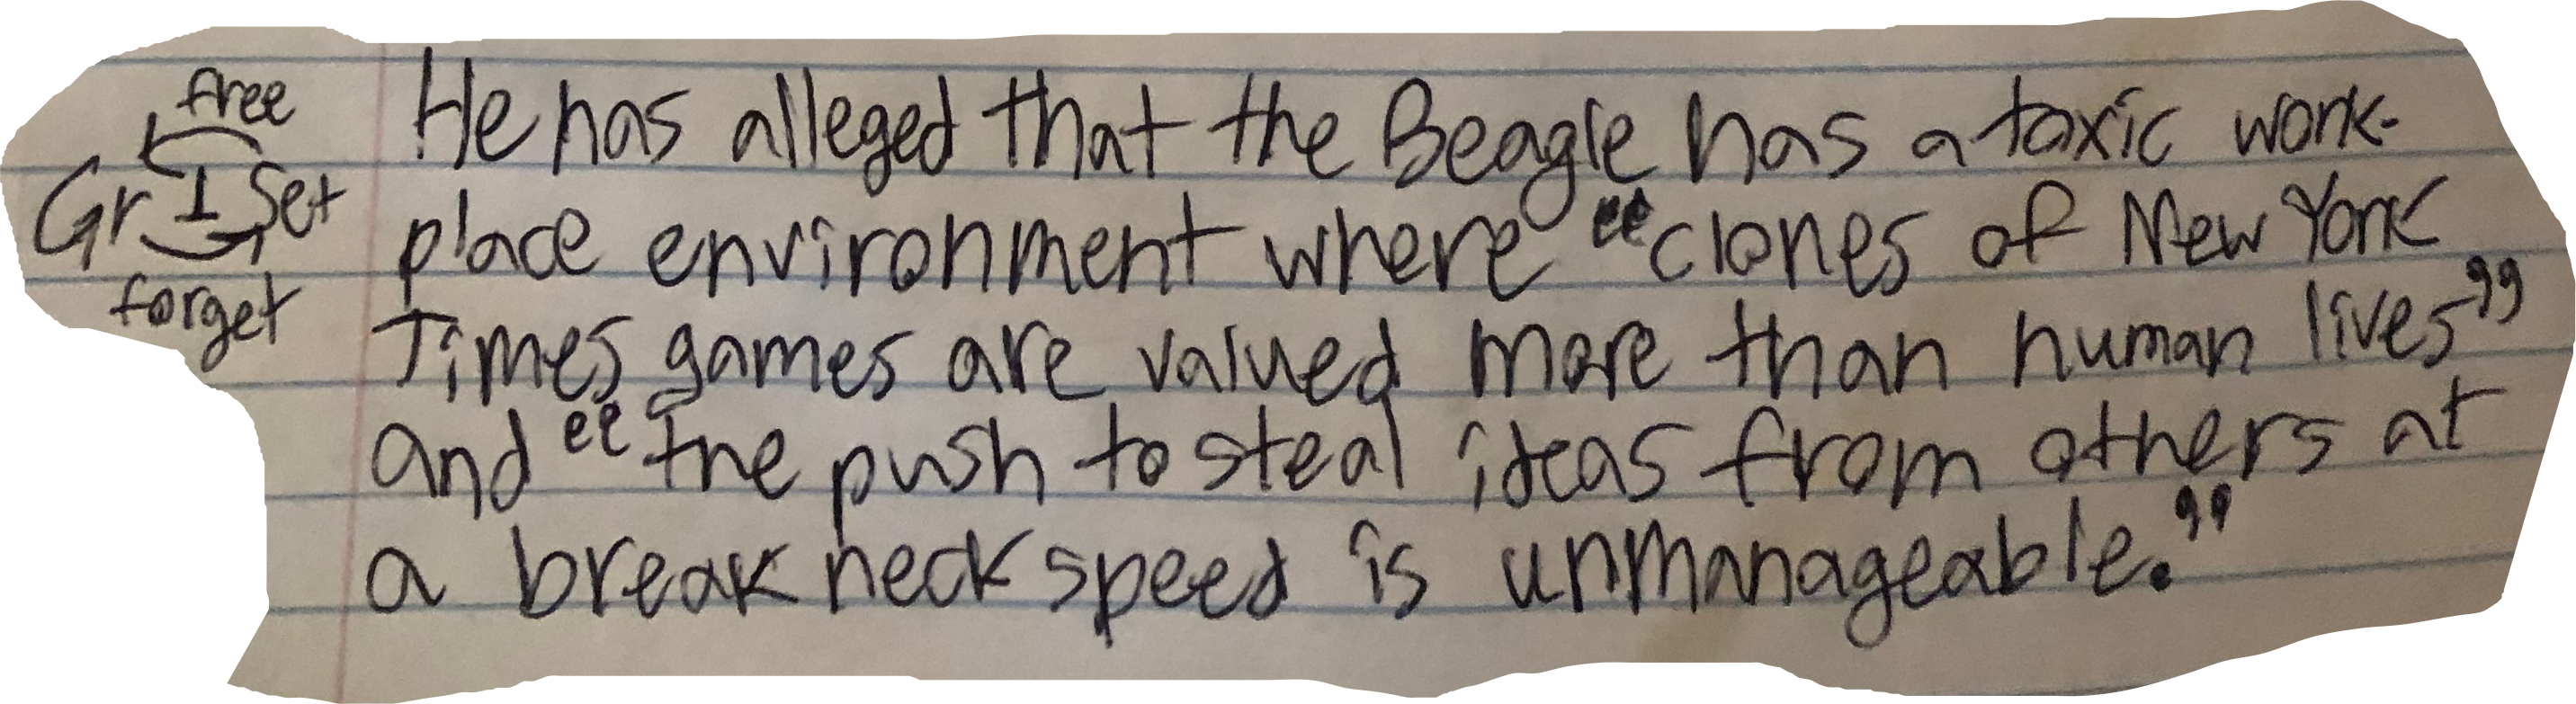 free
Gr ⊥ Set
forget
He has alleged that the Beagle has a toxic work-
place environment where “clones of New York
Times games are valued more than human lives”
and “the push to steal ideas from others at
a break neck speed is unmanageable.”